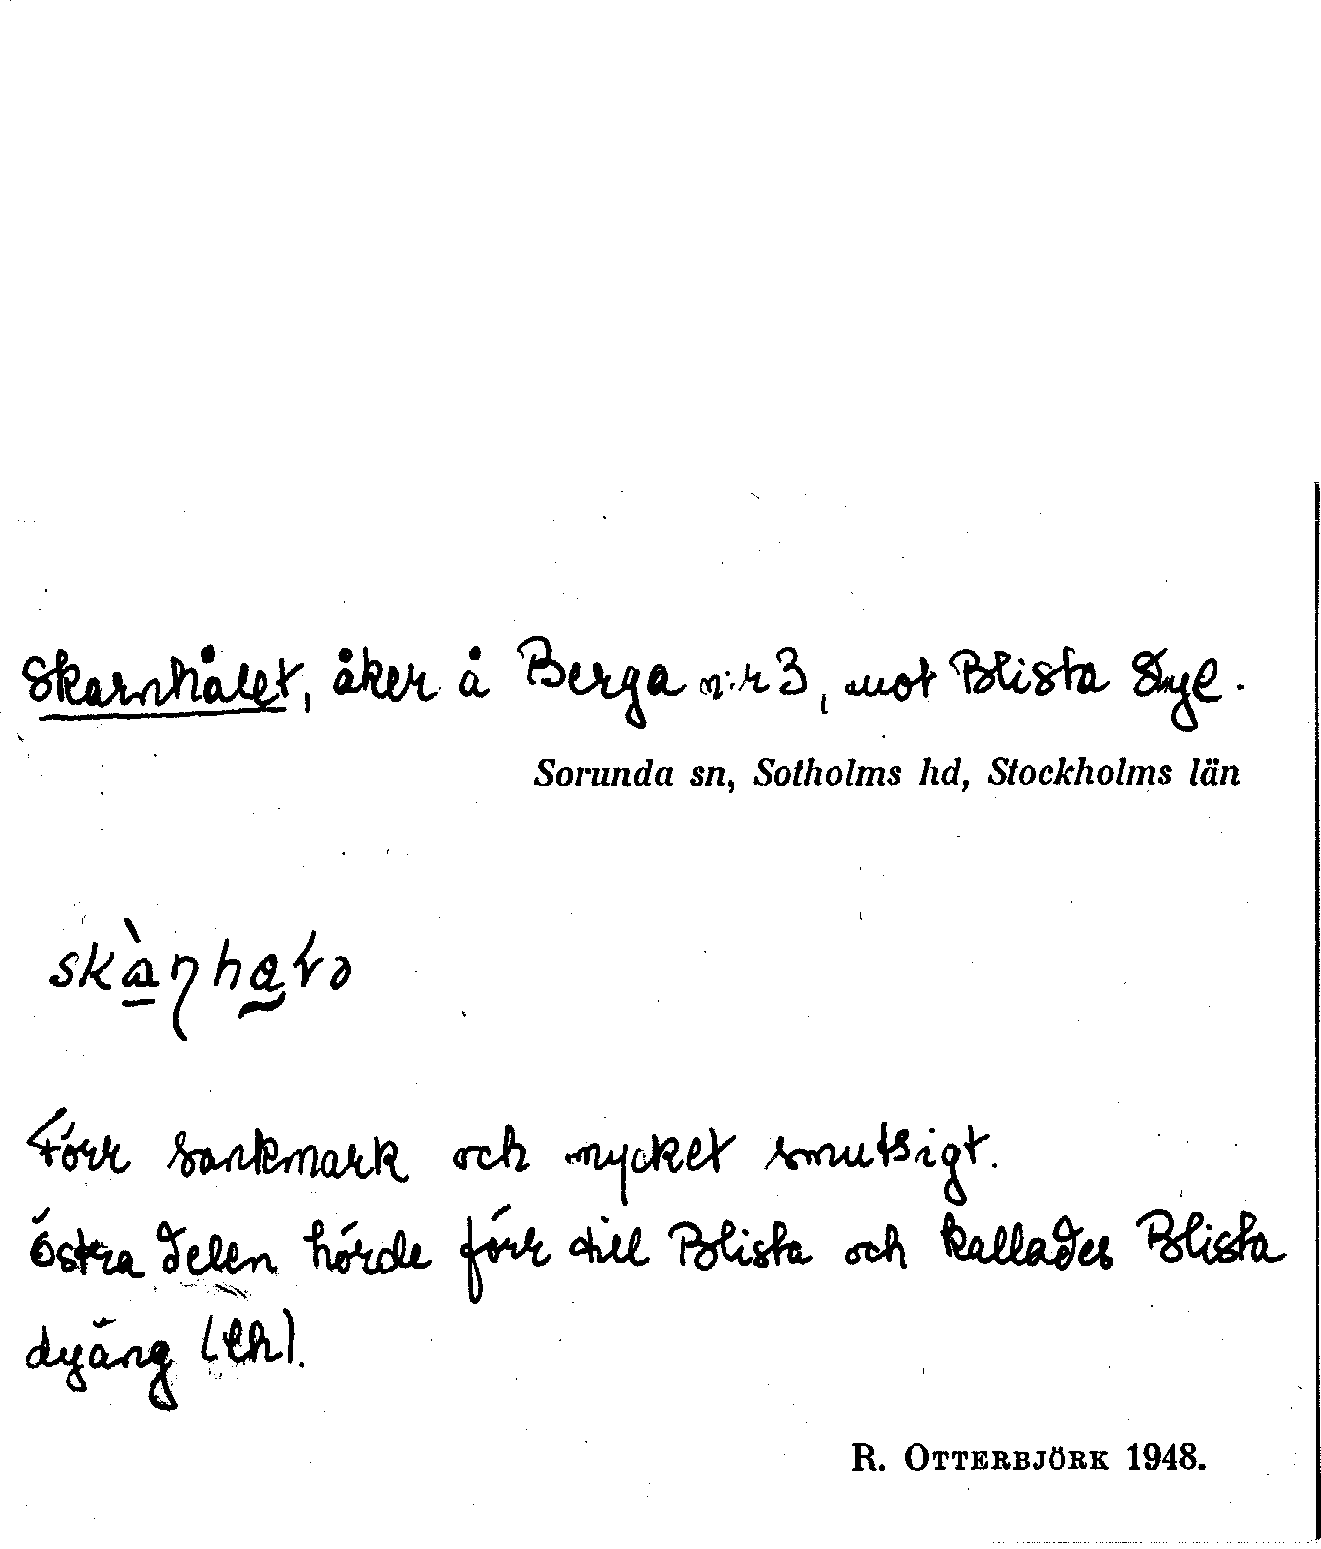 Skarnhålet, åker å Berga nr 3, mot Blista
Sorunda sn, Sotholms hd, Stockholms län
Förr sankmark och mycket smutsigt.
Östra delen hörde förr till Blista och kallades Blista
dyäng (th).
R. OTTERBJÖRK 1948.